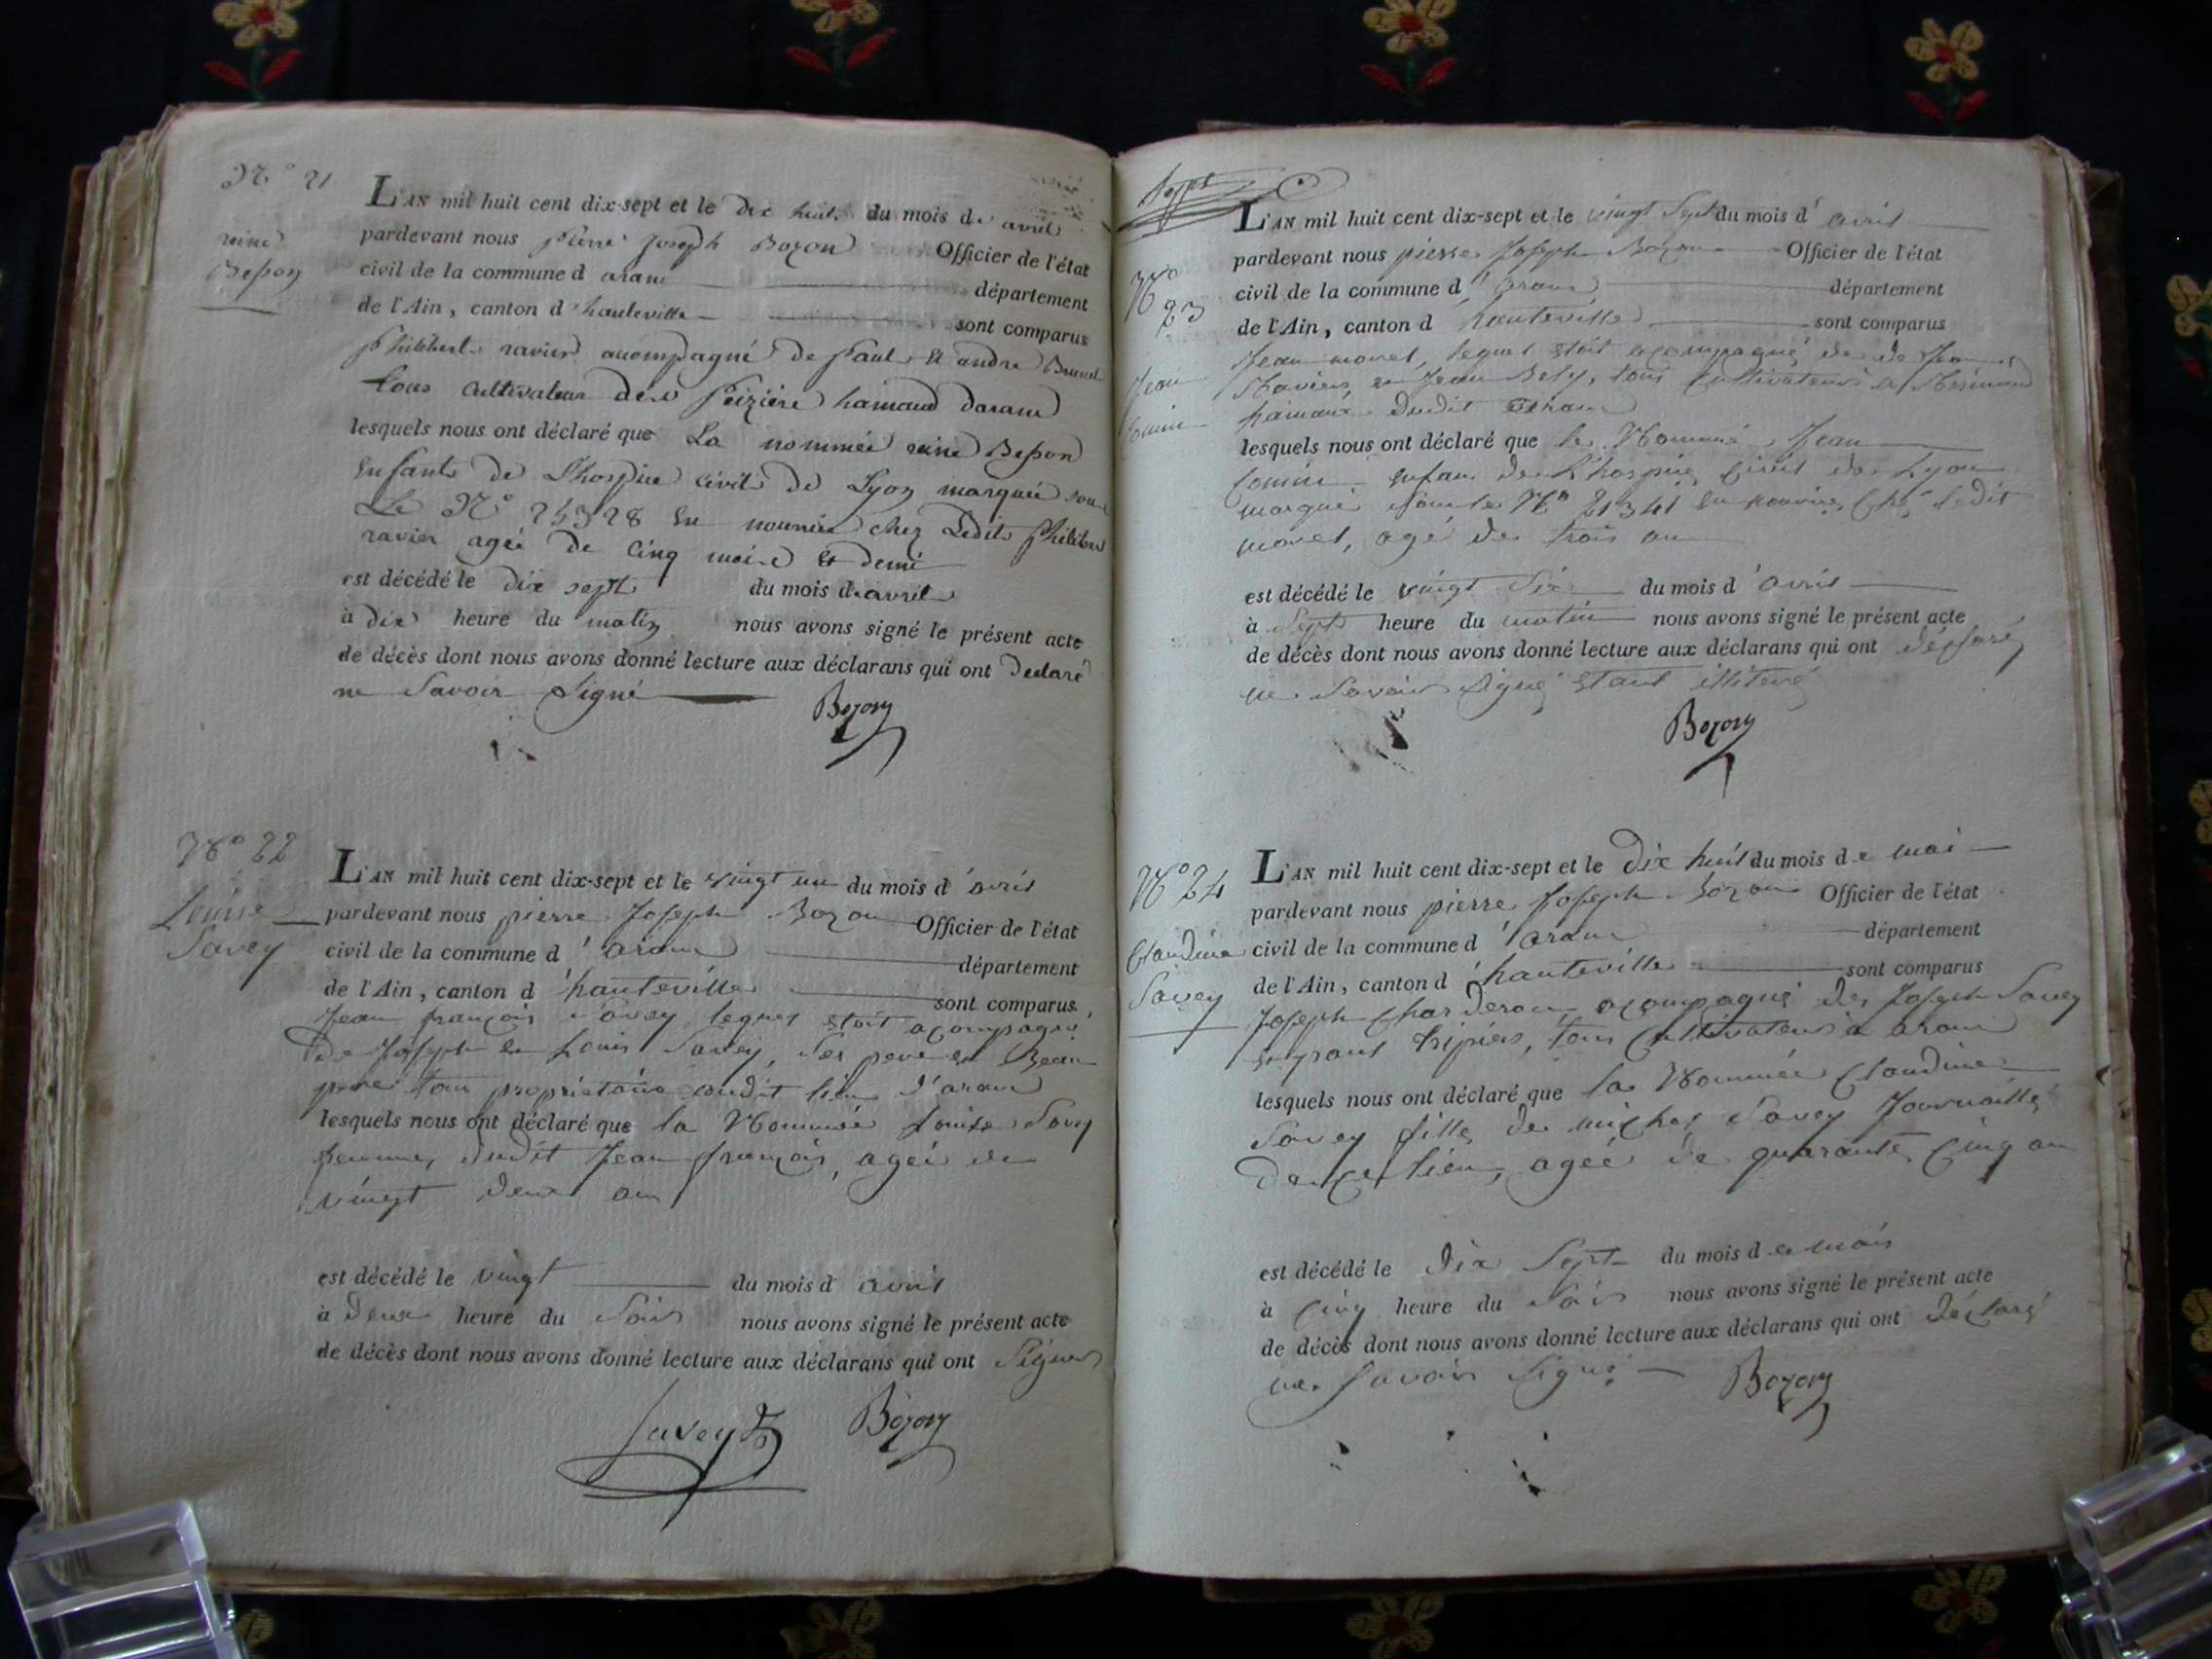 N.° 21
reine
Besson
L'AN mil huit cent dix-sept et le dix huit du mois de avril
pardevant nous pierre joseph Bozon Officier de l'état
civil de la commune d aranc département
de l'Ain, canton d'hauteville sont comparus
philibert ravier acompagné de paul et andre
tous cultivateur de hamaud daranc
lesquels nous ont déclaré que La nommée reine Besson
enfant de L'hospice civil de Lyon marquée sous
Le N° 24328 en nourrice chez Ledit philibert
ravier agée de Cinq mois et demi
est décédé le dix sept du mois d avril
à dix heure du matin nous avons signé le présent acte
de décès dont nous avons donné lecture aux déclarans qui ont declaré
ne savoir signé
Bozon
N° 22
Louise
Savey
L'AN mil huit cent dix-sept et le vingt un du mois d'avril
pardevant nous pierre Joseph Bozon Officier de l'état
civil de la commune d'aranc département
de l'Ain, canton d'hauteville sont comparus
Jean françois Savey lequel etoit acompagné
de Joseph et Louis Savey, ses pere et Beau
pere tous proprietaire audit lieu d'aranc
lesquels nous ont déclaré que la Nommée Louise Savey
femme dudit Jean françois, agée de
vingt deux an
est décédé le vingt du mois d avril
à deux heure du Soir nous avons signé le présent acte
de décès dont nous avons donné lecture aux déclarans qui ont Signer
Savey Bozon
N°
23
Jean
L'AN mil huit cent dix-sept et le vingt Sept du mois d'avril
pardevant nous pierre Joseph Bozon Officier de l'état
civil de la commune d'aranc département
de l'Ain, canton d hauteville sont comparus
Jean morel, lequel etoit acompagné de de Jean
Ravier et Jean Bely, tous Cultivateurs a
hamaux dudit aranc
lesquels nous ont déclaré que le Nommé Jean
enfant de l'hospice Civil de Lyon
marqué sous le N° 21341 en nourrice Chés ledit
morel, agé de trois an
est décédé le vingt Six du mois d'avril
à Sept heure du matin nous avons signé le présent acte
de décès dont nous avons donné lecture aux déclarans qui ont déclaré
ne Savoir Signé etant illiteré
Bozon
N° 24
Claudine
Savey
L'AN mil huit cent dix-sept et le Dix huit du mois de mai
pardevant nous pierre Joseph Bozon Officier de l'état
civil de la commune d'aranc département
de l'Ain, canton d'hauteville sont comparus
Joseph Charderon acompagné de Joseph Savey
tripier, tous Cultivateurs a aranc
lesquels nous ont déclaré que la Nommée Claudine
Savey fille de michel Savey
De Ce lieu, agée de quarante Cinq an
est décédé le dix Sept du mois de mais
à Cinq heure du Soir nous avons signé le présent acte
de décès dont nous avons donné lecture aux déclarans qui ont déclaré
ne Savoir Signé
Bozon